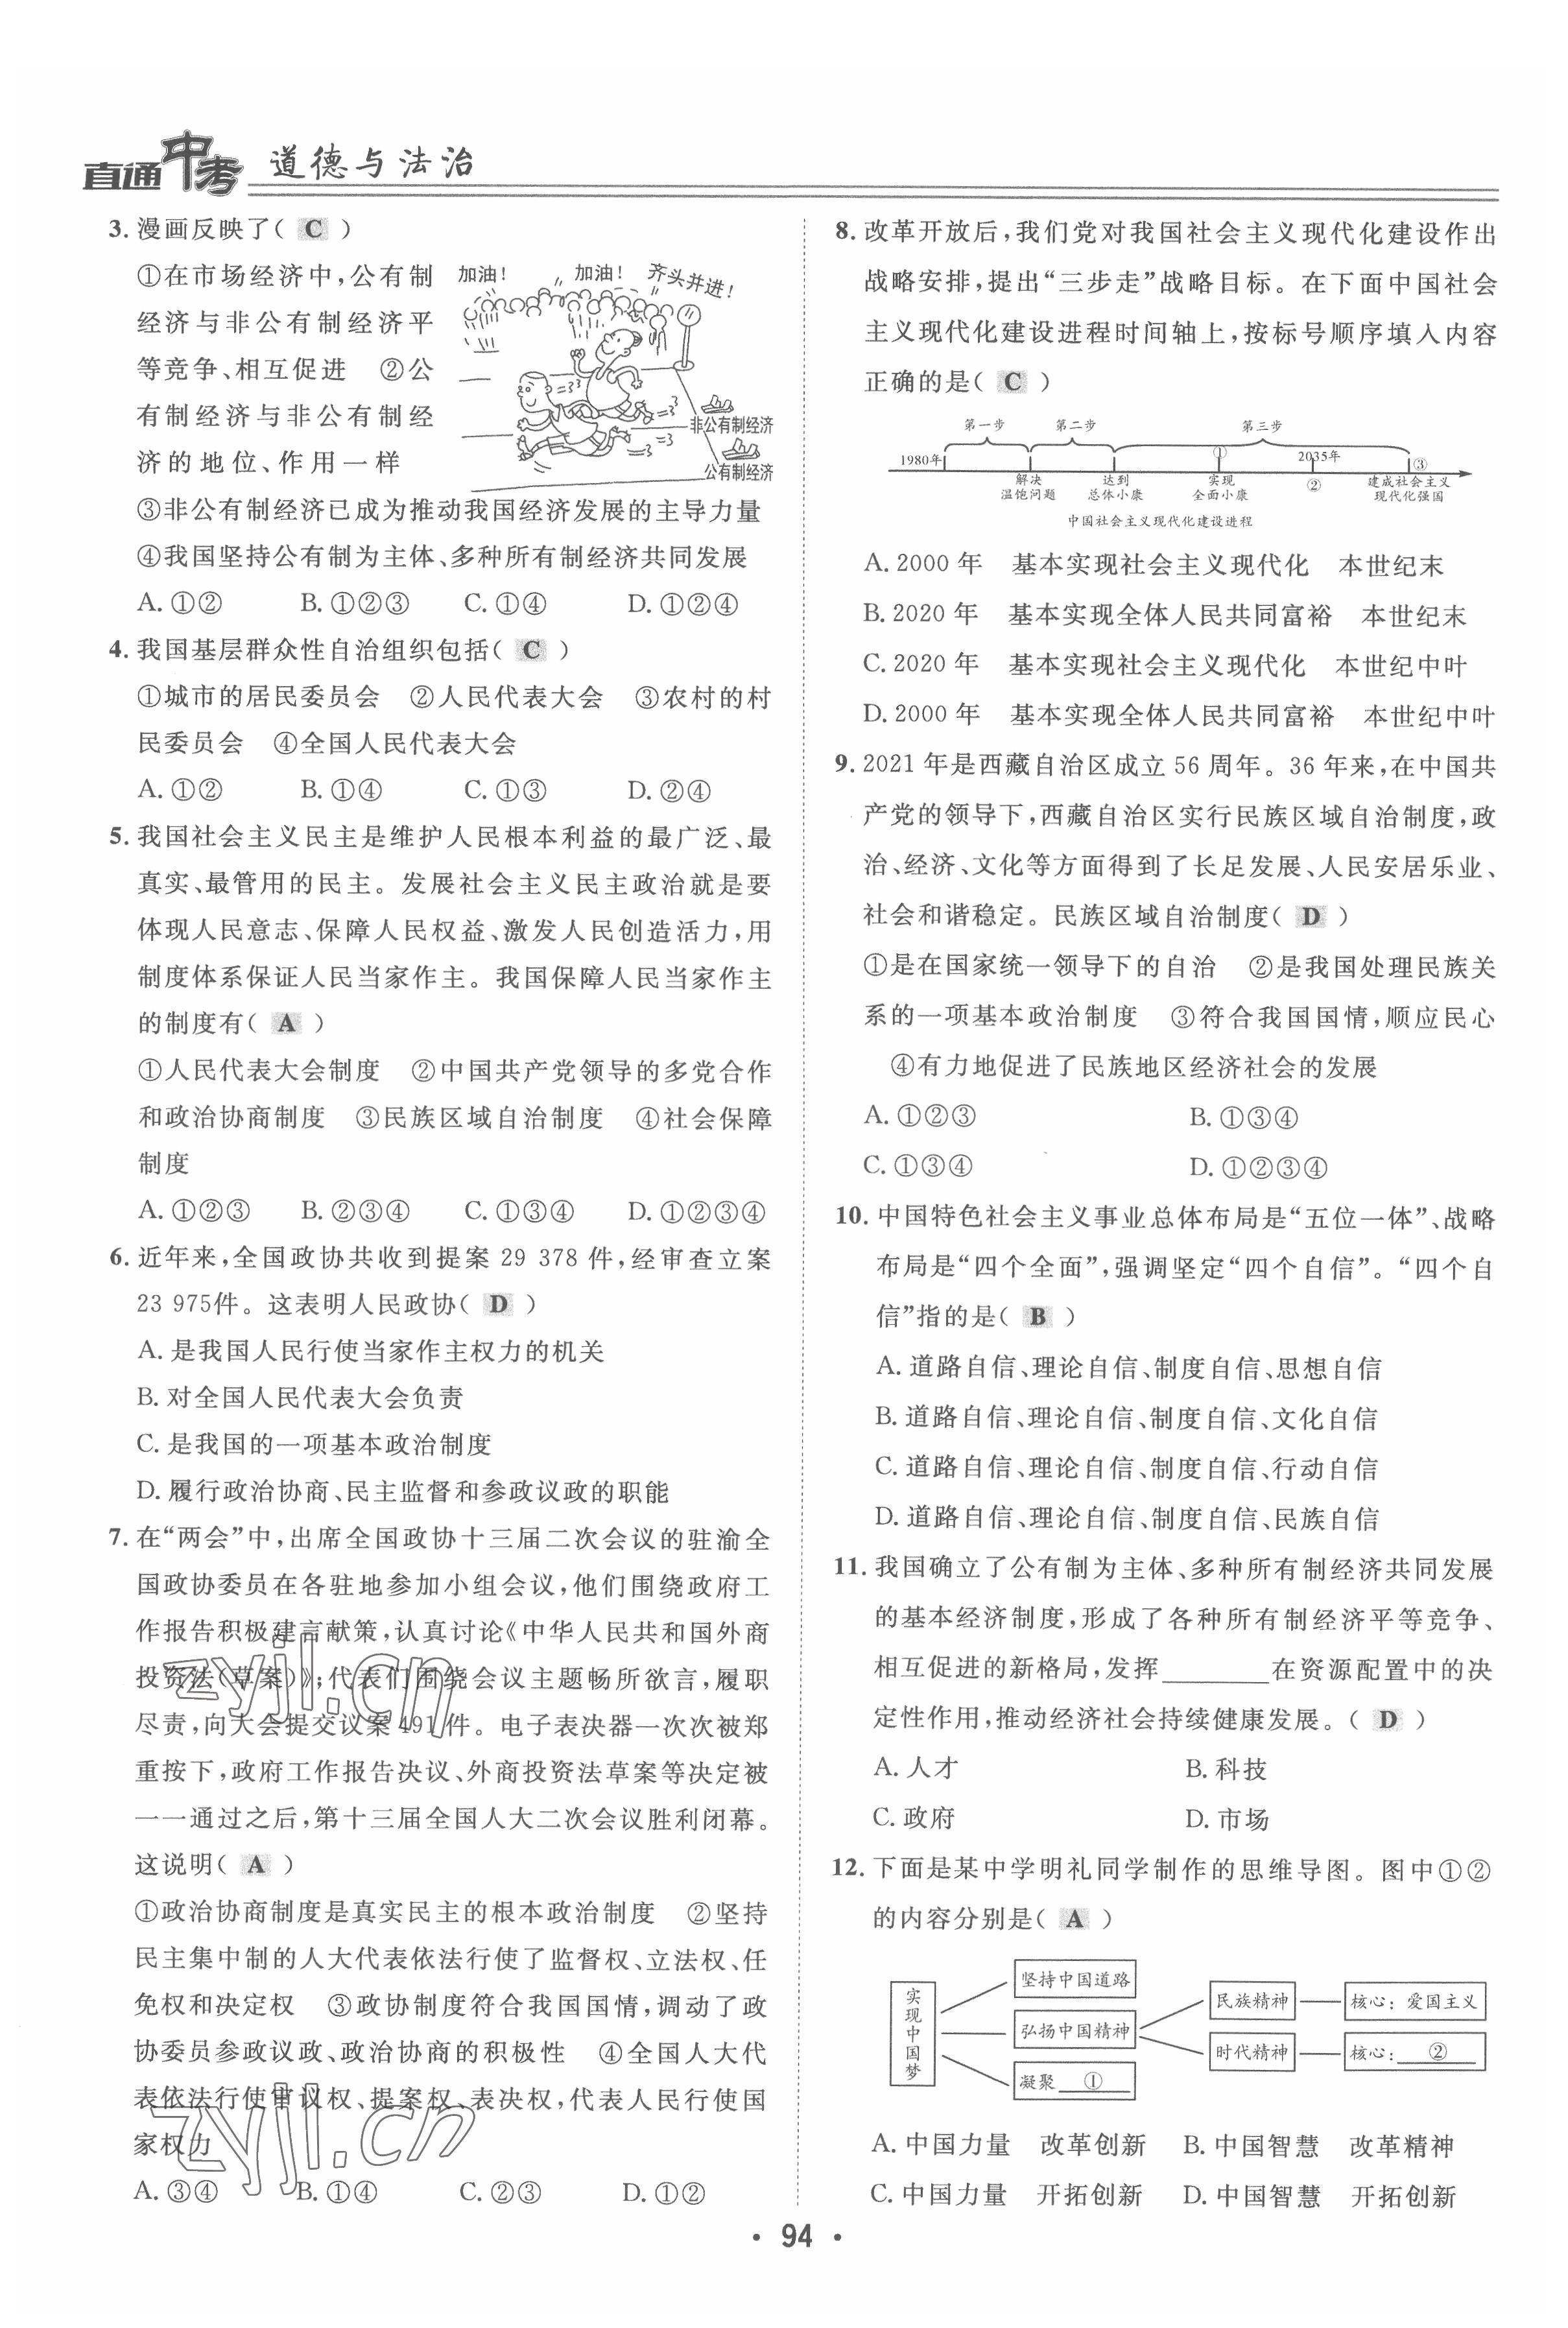 直通中考 道德与法治
3. 漫画反映了( C )
①在市场经济中,公有制
经济与非公有制经济平
等竞争、相互促进 ②公
有制经济与非公有制经
济的地位、作用一样
加油! 加油! 齐头并进!
非公有制经济
公有制经济
③非公有制经济已成为推动我国经济发展的主导力量
④我国坚持公有制为主体、多种所有制经济共同发展
A. ①② B. ①②③ C. ①④ D. ①②④
4. 我国基层群众性自治组织包括( C )
①城市的居民委员会 ②人民代表大会 ③农村的村
民委员会 ④全国人民代表大会
A. ①② B. ①④ C. ①③ D. ②④
5. 我国社会主义民主是维护人民根本利益的最广泛、最
真实、最管用的民主。发展社会主义民主政治就是要
体现人民意志、保障人民权益、激发人民创造活力,用
制度体系保证人民当家作主。我国保障人民当家作主
的制度有( A )
①人民代表大会制度 ②中国共产党领导的多党合作
和政治协商制度 ③民族区域自治制度 ④社会保障
制度
A. ①②③ B. ②③④ C. ①③④ D. ①②③④
6. 近年来,全国政协共收到提案 29 378 件,经审查立案
23 975件。这表明人民政协( D )
A. 是我国人民行使当家作主权力的机关
B. 对全国人民代表大会负责
C. 是我国的一项基本政治制度
D. 履行政治协商、民主监督和参政议政的职能
7. 在“两会”中,出席全国政协十三届二次会议的驻渝全
国政协委员在各驻地参加小组会议,他们围绕政府工
作报告积极建言献策,认真讨论《中华人民共和国外商
投资法(草案)》;代表们围绕会议主题畅所欲言,履职
尽责,向大会提交议案491件。电子表决器一次次被郑
重按下,政府工作报告决议、外商投资法草案等决定被
一一通过之后,第十三届全国人大二次会议胜利闭幕。
这说明( A )
①政治协商制度是真实民主的根本政治制度 ②坚持
民主集中制的人大代表依法行使了监督权、立法权、任
免权和决定权 ③政协制度符合我国国情,调动了政
协委员参政议政、政治协商的积极性 ④全国人大代
表依法行使审议权、提案权、表决权,代表人民行使国
家权力
A. ③④ B. ①④ C. ②③ D. ①②
zyjl.cn
zyjl.cn
8. 改革开放后,我们党对我国社会主义现代化建设作出
战略安排,提出“三步走”战略目标。在下面中国社会
主义现代化建设进程时间轴上,按标号顺序填入内容
正确的是( C )
第一步 第二步 第三步
1980年 ① 2035年 ③
解决 达到 实现 ② 建成社会主义
温饱问题 总体小康 全面小康 现代化强国
中国社会主义现代化建设进程
A. 2000 年 基本实现社会主义现代化 本世纪末
B. 2020 年 基本实现全体人民共同富裕 本世纪末
C. 2020 年 基本实现社会主义现代化 本世纪中叶
D. 2000 年 基本实现全体人民共同富裕 本世纪中叶
9. 2021 年是西藏自治区成立 56 周年。36 年来,在中国共
产党的领导下,西藏自治区实行民族区域自治制度,政
治、经济、文化等方面得到了长足发展、人民安居乐业、
社会和谐稳定。民族区域自治制度( D )
①是在国家统一领导下的自治 ②是我国处理民族关
系的一项基本政治制度 ③符合我国国情,顺应民心
④有力地促进了民族地区经济社会的发展
A. ①②③ B. ①③④
C. ①③④ D. ①②③④
10. 中国特色社会主义事业总体布局是“五位一体”、战略
布局是“四个全面”,强调坚定“四个自信”。“四个自
信”指的是( B )
A. 道路自信、理论自信、制度自信、思想自信
B. 道路自信、理论自信、制度自信、文化自信
C. 道路自信、理论自信、制度自信、行动自信
D. 道路自信、理论自信、制度自信、民族自信
11. 我国确立了公有制为主体、多种所有制经济共同发展
的基本经济制度,形成了各种所有制经济平等竞争、
相互促进的新格局,发挥________在资源配置中的决
定性作用,推动经济社会持续健康发展。( D )
A. 人才 B. 科技
C. 政府 D. 市场
12. 下面是某中学明礼同学制作的思维导图。图中①②
的内容分别是( A )
实现中国梦
坚持中国道路
弘扬中国精神
凝聚 ①
民族精神 核心:爱国主义
时代精神 核心: ②
A. 中国力量 改革创新 B. 中国智慧 改革精神
C. 中国力量 开拓创新 D. 中国智慧 开拓创新
• 94 •